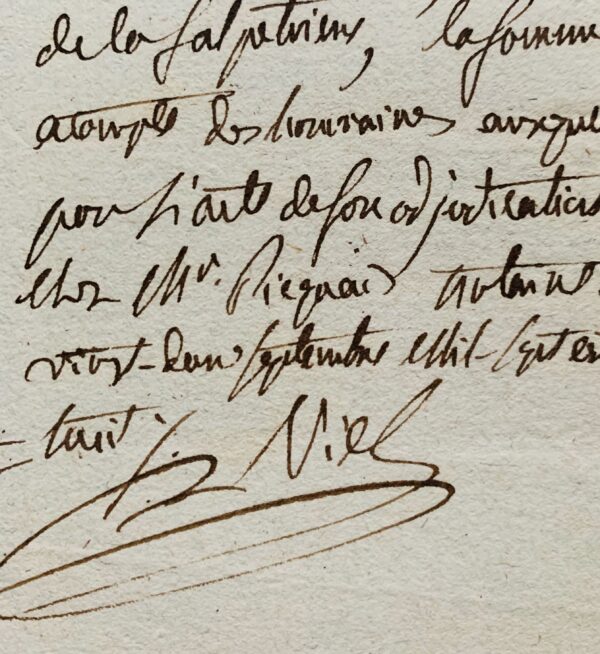 de la Salpetriere, la somme
acompte des honoraires auxque
par l'acte de son adjudication
chez Mr. Picquais notaire
vingt-deux septembre Mil-sept
huit. Viel